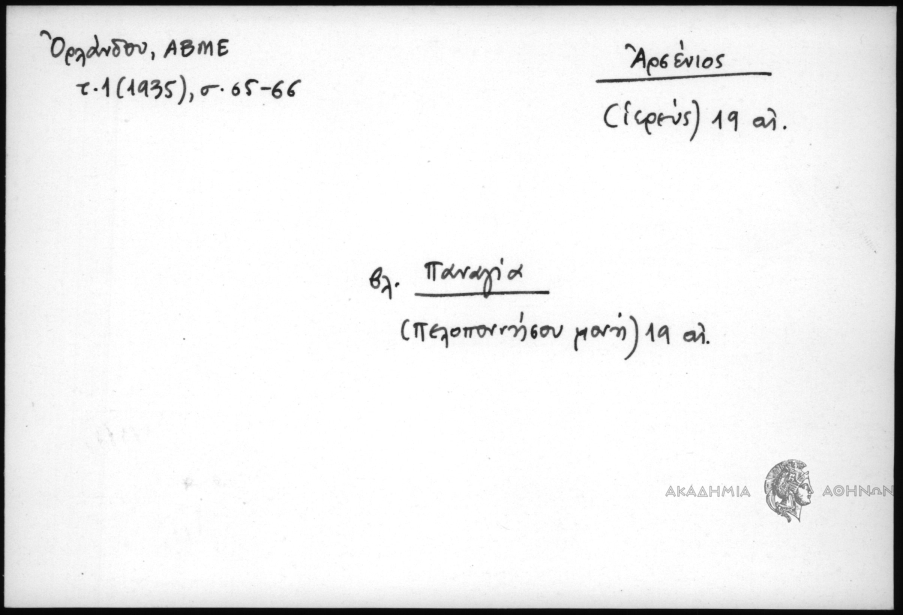 Ὀρλάνδου, ΑΒΜΕ
τ. 1 (1935), σ. 65-66
Ἀρσένιος
(ἱερεύς) 19 αἰ.
βλ. Παναγία
(Πελοποννήσου μονή) 19 αἰ.
ΑΚΑΔΗΜΙΑ ΑΘΗΝΩΝ